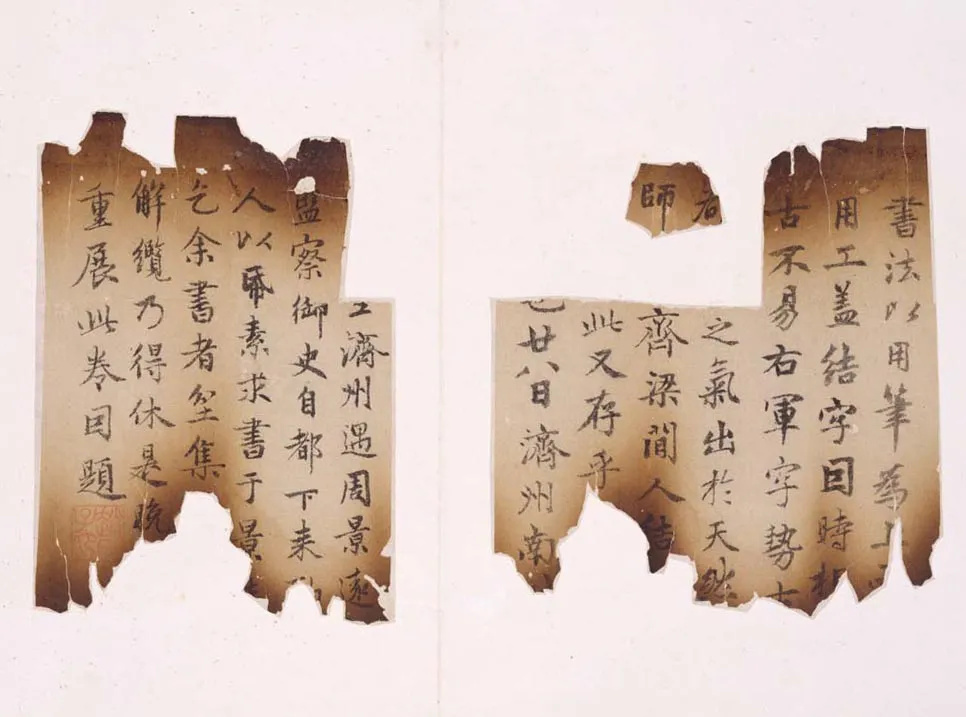 書法以用筆為上
用工盖結字囙時相
古不易右軍字勢古
者之氣出於天然
師齊梁間人結
此又存乎
也廿八日濟州南
濟州遇周景遠
監察御史自都下来
人以帋素求書于景
乞余書者坌集
解纜乃得休是晚
重展此卷囙題